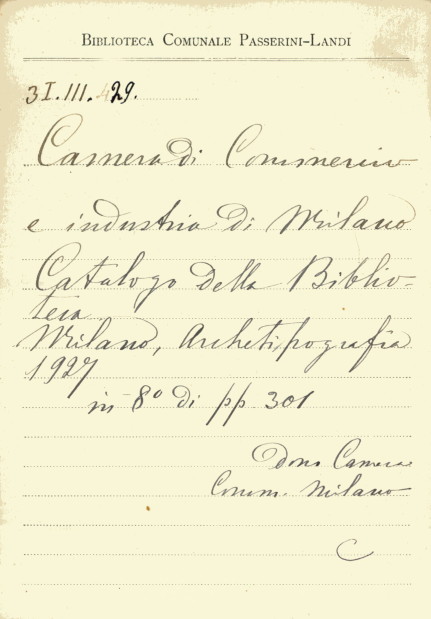 BIBLIOTECA COMUNALE PASSERINI-LANDI
3I.III.29.
Camera di Commercio
e industria di Milano
Catalogo della Biblio-
teca
Milano, Archetipografia
1927
in 8º di pp. 301
Dono Camera
Comm. Milano
C